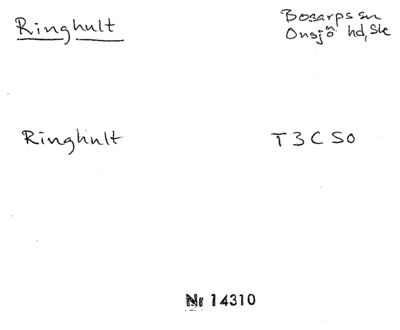 Ringhult
Bosarps sn
Onsjö hd, Sk
Ringhult
T 3 C SO
Nr 14310